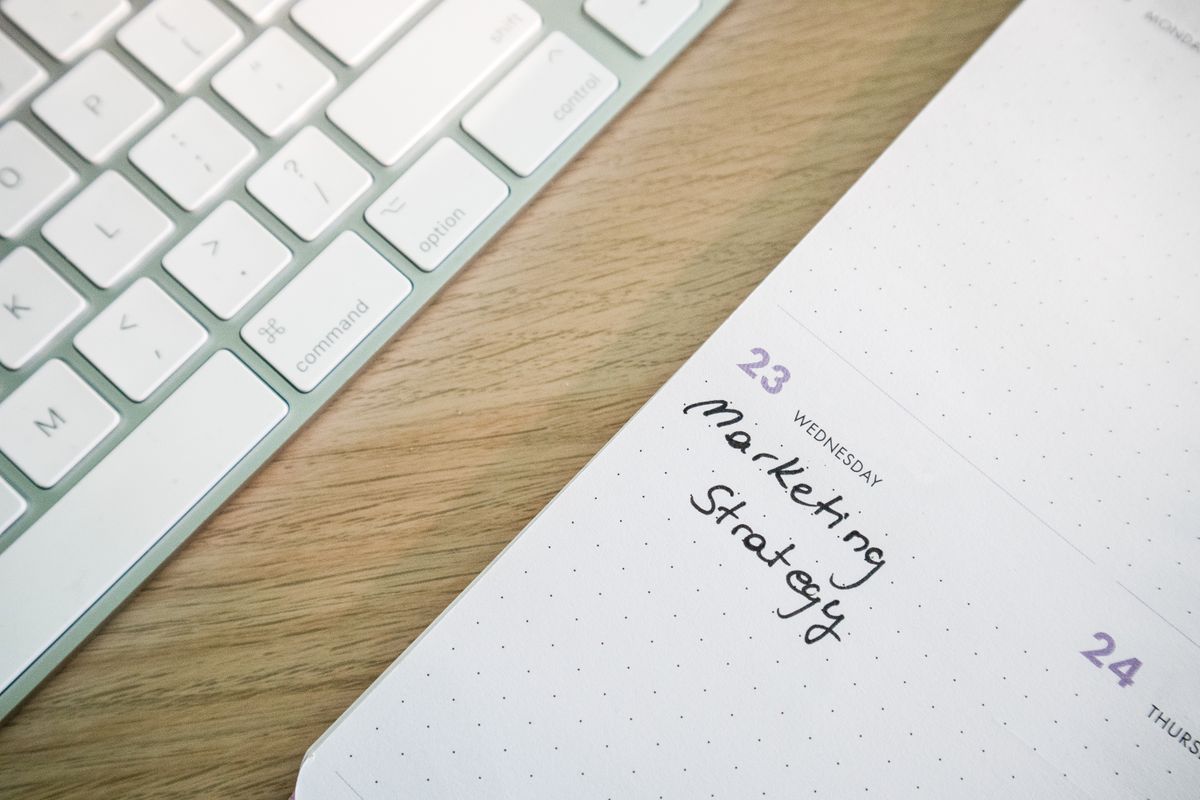 shift
control
option
command
P
O
L
K
M
? /
> .
< ,
23
WEDNESDAY
Marketing
Strategy
24